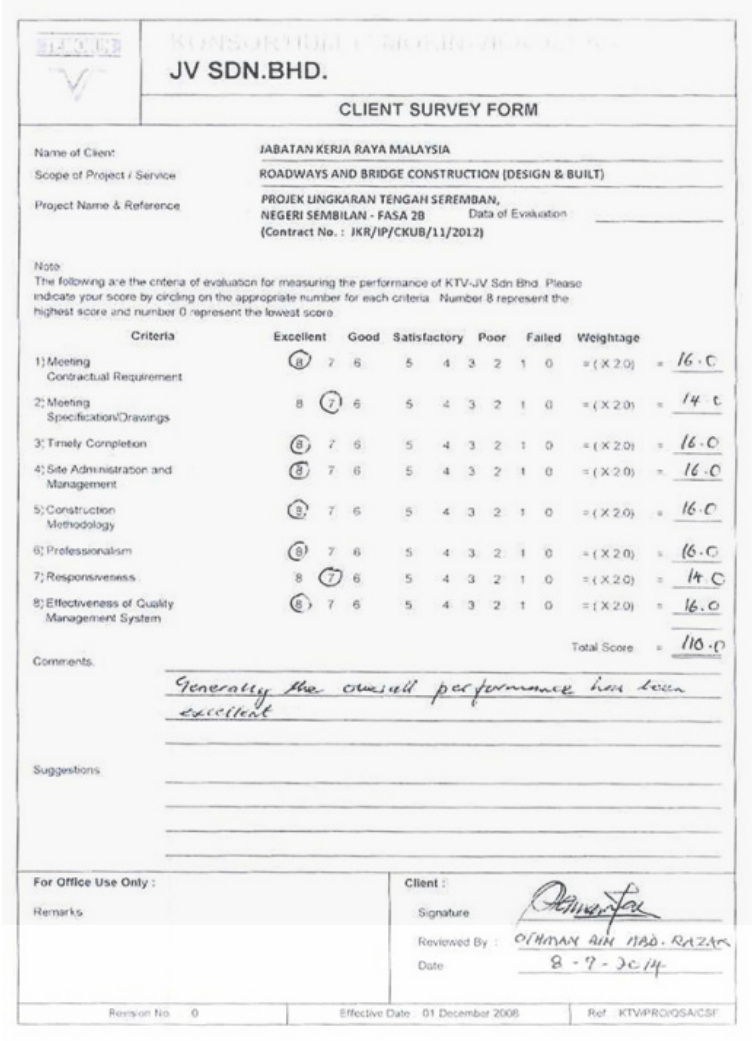 JV SDN.BHD.
CLIENT SURVEY FORM
Name of Client JABATAN KERJA RAYA MALAYSIA
Scope of Project / Service ROADWAYS AND BRIDGE CONSTRUCTION (DESIGN & BUILT)
Project Name & Reference PROJEK LINGKARAN TENGAH SEREMBAN,
NEGERI SEMBILAN - FASA 2B Data of Evaluation
(Contract No. : JKR/IP/CKUB/11/2012)
Note
The following are the criteria of evaluation for measuring the performance of KTV-JV Sdn Bhd. Please
indicate your score by circling on the appropriate number for each criteria. Number 8 represent the
highest score and number 0 represent the lowest score.
Criteria Excellent Good Satisfactory Poor Failed Weightage
1) Meeting 8 7 6 5 4 3 2 1 0 = ( X 2.0) = 16.0
Contractual Requirement
2) Meeting 8 7 6 5 4 3 2 1 0 = ( X 2.0) = 14.0
Specification/Drawings
3) Timely Completion 8 7 6 5 4 3 2 1 0 = ( X 2.0) = 16.0
4) Site Administration and 8 7 6 5 4 3 2 1 0 = ( X 2.0) = 16.0
Management
5) Construction 8 7 6 5 4 3 2 1 0 = ( X 2.0) = 16.0
Methodology
6) Professionalism 8 7 6 5 4 3 2 1 0 = ( X 2.0) = 16.0
7) Responsiveness 8 7 6 5 4 3 2 1 0 = ( X 2.0) = 14.0
8) Effectiveness of Quality 8 7 6 5 4 3 2 1 0 = ( X 2.0) = 16.0
Management System
Total Score = 110.0
Comments
Generally the overall performance has been
excellent
Suggestions
For Office Use Only :
Remarks
Client :
Signature
Reviewed By : OTHMAN BIN MAD. RAZAK
Date 8-7-2014
Revision No. 0 Effective Date : 01 December 2008 Ref : KTV/PRO/QSA/CSF